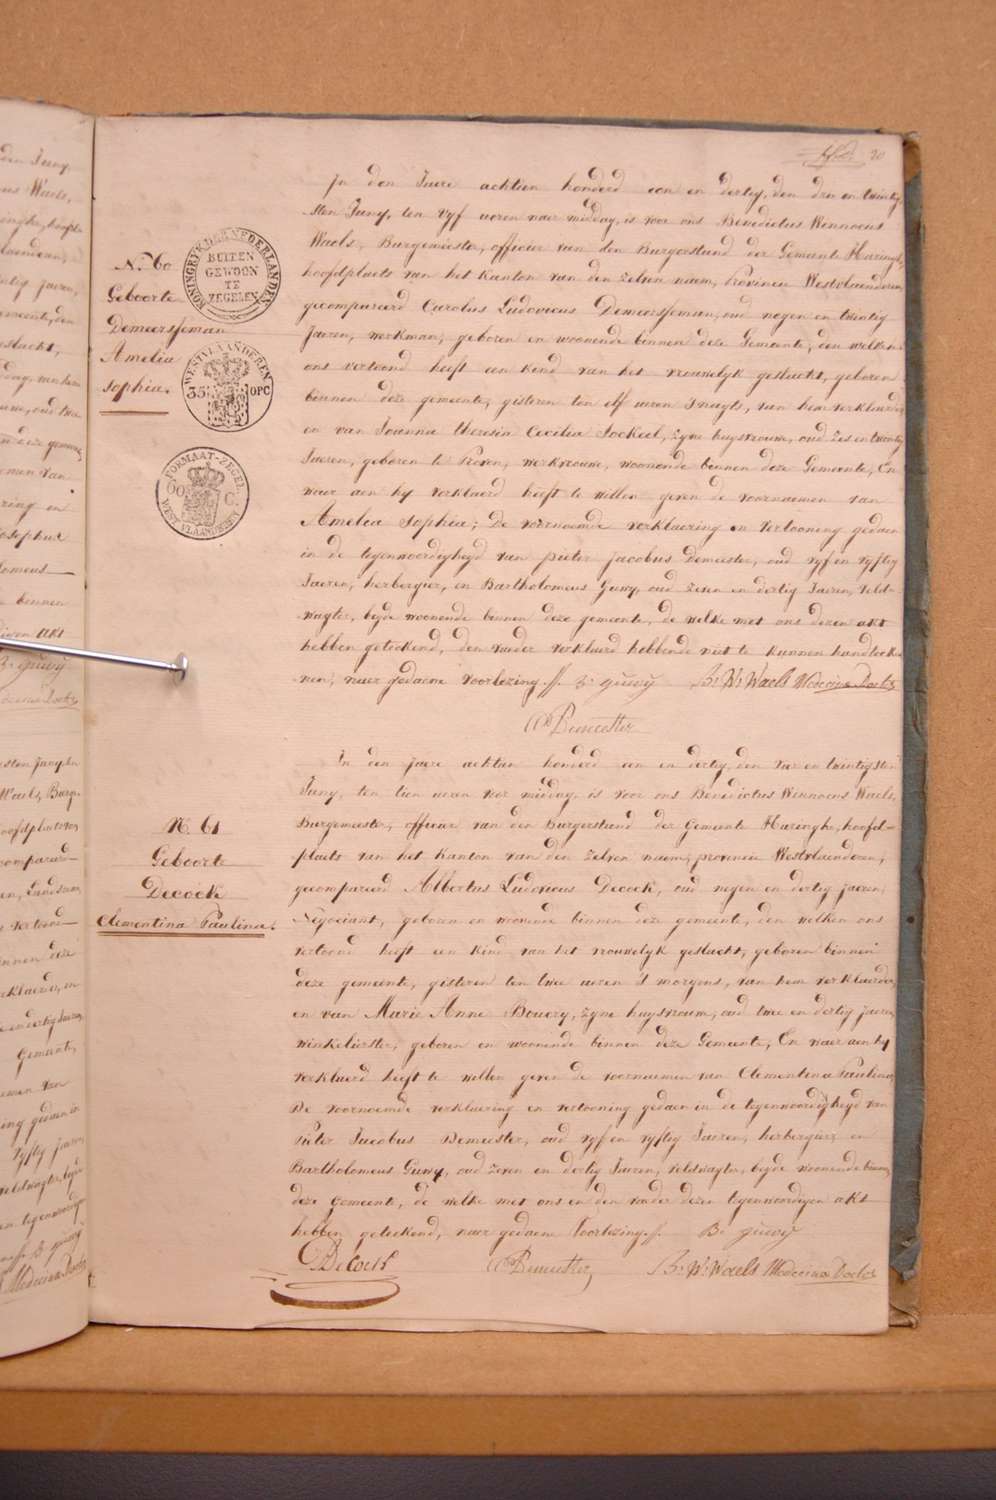 20
KONINGRYK DER NEDERLANDEN
BUITEN
GEWOON
TE
ZEGELEN
WESTVLAANDEREN
35 OPC
FORMAAT-ZEGEL
60 C.
WEST VLAANDEREN
N.° 60
Geboorte
Demeersseman
Amelia
Sophia.
In den Jaere achtien honderd een en dertig, den dry en twintig-
sten Juny, ten vyf ueren naer middag, is voor ons Benedictus Winnocus
Waels, Burgemeester, officier van den Burgerstand der Gemeente Haringhe,
hoofdplaets van het Kanton van den zelven naem, Provincie Westvlaenderen,
gecompareerd Carolus Ludovicus Demeersseman, oud negen en twintig
Jaeren, werkman, geboren en woonende binnen deze Gemeente, den welken
ons vertoond heeft een kind van het vrouwelyk geslacht, geboren
binnen deze gemeente, gisteren ten elf ueren s'nagts, van hem verklaerder
en van Joanna Theresia Cecilia Sockeel, zyne huysvrouwe, oud zes en twintig
Jaeren, geboren te Proven, werkvrouwe, woonende binnen deze Gemeente, En
waer aen hy verklaerd heeft te willen geven de voornaemen van
Amelia Sophia; De voornoemde verklaering en vertooning gedaen
in de tegenwoordigheyd van pieter jacobus Demeester, oud vyf en vyftig
Jaeren, herbergier, en Bartholomeus Guwy, oud zeven en dertig Jaeren, veld-
wagter, beyde woonende binnen deze gemeente, de welke met ons dezen akt
hebben geteekend, den vader verklaerd hebbende niet te kunnen handteeke-
nen, naer gedaene voorlezing. B: guwy B: W: Waels Medecinae Doctor
Demeester
N. 61
Geboorte
Decock
Clementina Paulina.
In den jaere achtien honderd een en dertig, den vier en twintigsten
Juny, ten tien ueren voor middag, is voor ons Benedictus Winnocus Waels,
Burgemeester, officier van den Burgerstand der Gemeente Haringhe, hoofd-
plaets van het Kanton van den zelven naem, provincie Westvlaenderen,
gecompareerd Albertus Ludovicus Decock, oud negen en dertig jaeren,
Negociant, geboren en woonende binnen deze gemeente, den welken ons
vertoond heeft een kind van het vrouwelyk geslacht, geboren binnen
deze gemeente, gisteren ten twee ueren 's morgens, van hem verklaerder,
en van Marie Anne Bouery, zyne huysvrouw, oud twee en dertig jaeren,
winkelierster, geboren en woonende binnen deze Gemeente, En waer aen hy
verklaerd heeft te willen geven de voornaemen van Clementina Paulina,
De voornoemde verklaering en vertooning gedaen in de tegenwoordigheyd van
Pieter Jacobus Demeester, oud vyf en vyftig Jaeren, herbergier, en
Bartholomeus Guwy, oud zeven en dertig Jaeren, veldwagter, beyde woonende binnen
deze Gemeente, de welke met ons en den vader dezen tegenwoordigen akt
hebben geteekend, naer gedaene Voorlezing. B: guwy
Decock Demeester B: W: Waels Medecinae Doctor